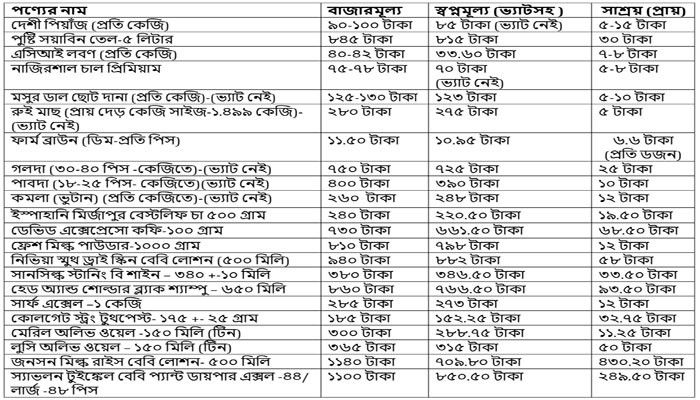 পণ্যের নাম বাজারমূল্য স্বপ্নমূল্য (ভ্যাটসহ ) সাশ্রয় (প্রায়)
দেশী পিয়াঁজ (প্রতি কেজি) ৯০-১০০ টাকা ৮৫ টাকা (ভ্যাট নেই) ৫-১৫ টাকা
পুষ্টি সয়াবিন তেল-৫ লিটার ৮৪৫ টাকা ৮১৫ টাকা ৩০ টাকা
এসিআই লবণ (প্রতি কেজি) ৪০-৪২ টাকা ৩৩.৬০ টাকা ৭-৮ টাকা
নাজিরশাল চাল প্রিমিয়াম ৭৫-৭৮ টাকা ৭০ টাকা ৫-৮ টাকা
(ভ্যাট নেই)
মসুর ডাল ছোট দানা (প্রতি কেজি)-(ভ্যাট নেই) ১২৫-১৩০ টাকা ১২৩ টাকা ৫-১০ টাকা
রুই মাছ (প্রায় দেড় কেজি সাইজ-১.৪৯৯ কেজি)- ২৮০ টাকা ২৭৫ টাকা ৫ টাকা
(ভ্যাট নেই)
ফার্ম ব্রাউন (ডিম-প্রতি পিস) ১১.৫০ টাকা ১০.৯৫ টাকা ৬.৬ টাকা
(প্রতি ডজন)
গলদা (৩০-৪০ পিস -কেজিতে)-(ভ্যাট নেই) ৭৫০ টাকা ৭২৫ টাকা ২৫ টাকা
পাবদা (১৮-২৫ পিস- কেজিতে)(ভ্যাট নেই) ৪০০ টাকা ৩৯০ টাকা ১০ টাকা
কমলা (ভুটান) (প্রতি কেজিতে)-(ভ্যাট নেই) ২৬০ টাকা ২৪৮ টাকা ১২ টাকা
ইস্পাহানি মির্জাপুর বেস্টলিফ চা ৫০০ গ্রাম ২৪০ টাকা ২২০.৫০ টাকা ১৯.৫০ টাকা
ডেভিড এক্সেপ্রেসো কফি-১০০ গ্রাম ৭৩০ টাকা ৬৬১.৫০ টাকা ৬৮.৫০ টাকা
ফ্রেশ মিল্ক পাউডার-১০০০ গ্রাম ৮১০ টাকা ৭৯৮ টাকা ১২ টাকা
নিভিয়া স্মুথ ড্রাই স্কিন বেবি লোশন (৫০০ মিলি) ৯৪০ টাকা ৮৮২ টাকা ৫৮ টাকা
সানসিল্ক স্টানিং বি শাইন – ৩৪০ +-১০ মিলি ৩৮০ টাকা ৩৪৬.৫০ টাকা ৩৩.৫০ টাকা
হেড অ্যান্ড শোল্ডার ব্ল্যাক শ্যাম্পু – ৬৫০ মিলি ৮৬০ টাকা ৭৬৬.৫০ টাকা ৯৩.৫০ টাকা
সার্ফ এক্সেল –১ কেজি ২৮৫ টাকা ২৭৩ টাকা ১২ টাকা
কোলগেট স্ট্রং টুথপেস্ট- ১৭৫ +- ২৫ গ্রাম ১৮৫ টাকা ১৫২.২৫ টাকা ৩২.৭৫ টাকা
মেরিল অলিভ ওয়েল -১৫০ মিলি (টিন) ৩০০ টাকা ২৮৮.৭৫ টাকা ১১.২৫ টাকা
লুসি অলিভ ওয়েল – ১৫০ মিলি (টিন) ৩৬৫ টাকা ৩১৫ টাকা ৫০ টাকা
জনসন মিল্ক রাইস বেবি লোশন- ৫০০ মিলি ১১৪০ টাকা ৭০৯.৮০ টাকা ৪৩০.২০ টাকা
স্যাভলন টুইঙ্কেল বেবি প্যান্ট ডায়পার এক্সল -৪৪/ ১১০০ টাকা ৮৫০.৫০ টাকা ২৪৯.৫০ টাকা
লার্জ -৪৮ পিস